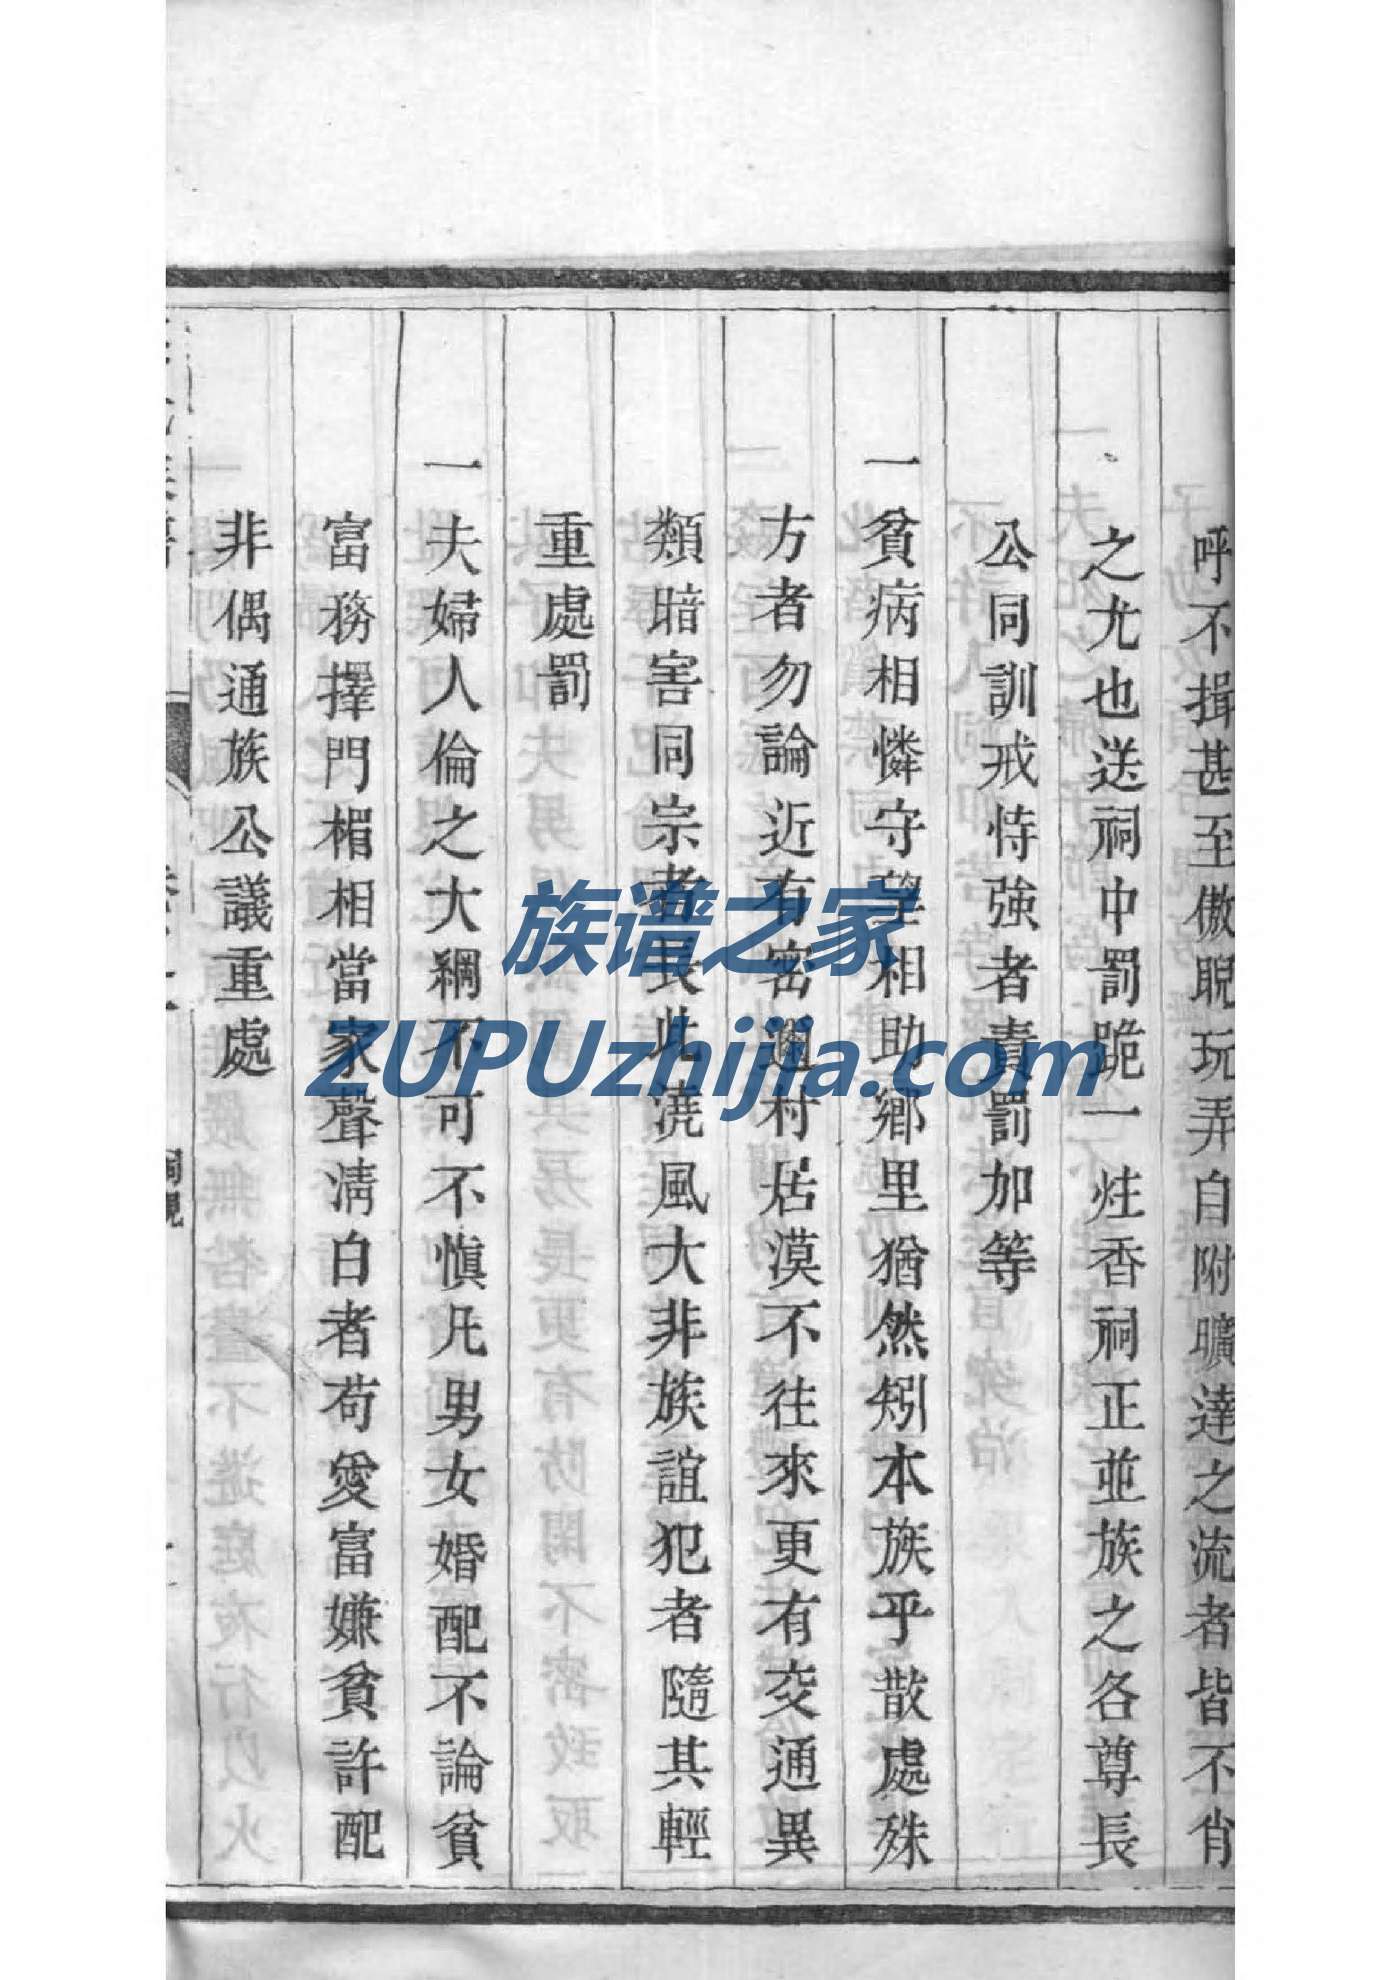 呼不揖甚至傲睨玩弄自附曠達之流者皆不肖
之尤也送祠中罰跪一炷香祠正並族之各尊長
公同訓戒恃強者責罰加等
一貧病相憐守望相助鄉里猶然矧本族乎散處殊
方者勿論近有密邇村居漠不往來更有交通異
類暗害同宗者長此澆風大非族誼犯者隨其輕
重處罰
一夫婦人倫之大綱不可不慎凡男女婚配不論貧
富務擇門楣相當家聲清白者苟愛富嫌貧許配
非偶通族公議重處
祠規
族谱之家
ZUPUzhijia.com